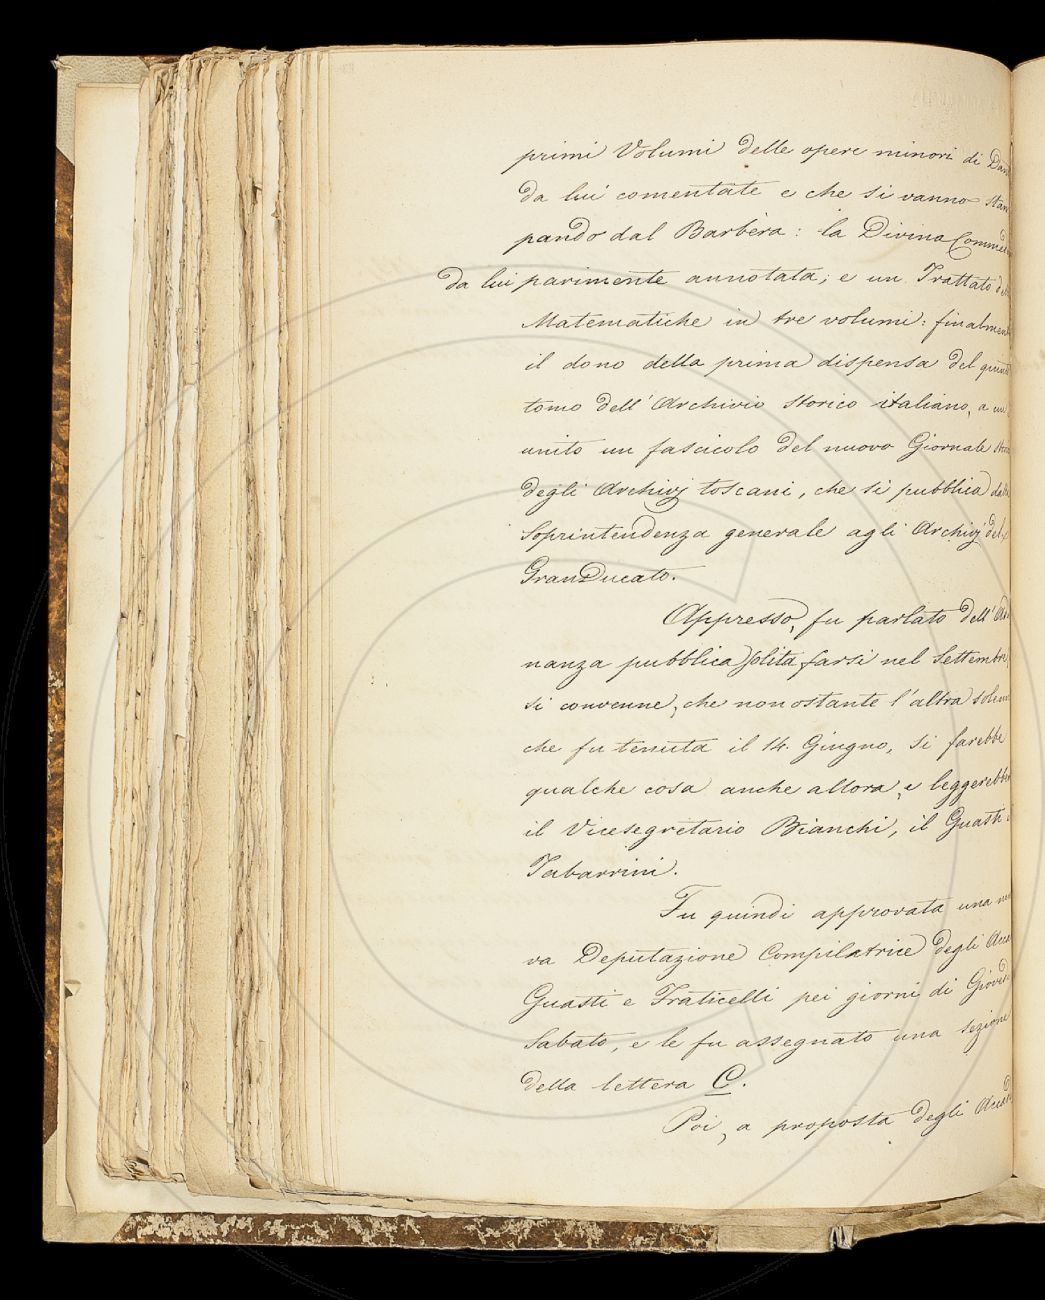 primi Volumi delle opere minori di Dan
da lui comentate e che si vanno stam
pando dal Barbèra: la Divina Commed
da lui parimente annotata; e un Trattato di
Matematiche in tre volumi: finalmen
il dono della prima dispensa del quint
tomo dell'Archivio Storico italiano, a cu
unito un fascicolo del nuovo Giornale sto
degli Archivj toscani, che si pubblica dalla
Soprintendenza generale agli Archivj del
GranDucato.
Appresso, fu parlato dell'Adu
nanza pubblica solita farsi nel Settembre,
si convenne, che non ostante l'altra solen
che fu tenuta il 14. Giugno, si farebbe
qualche cosa anche allora, e leggerebber
il Vicesegretario Bianchi, il Guasti
Tabarrini.
Fu quindi approvata una nuo
va Deputazione Compilatrice degli Acca
Guasti e Fraticelli pei giorni di Gioved
Sabato, e le fu assegnato una sezione
della lettera C.
Poi, a proposta degli Acca